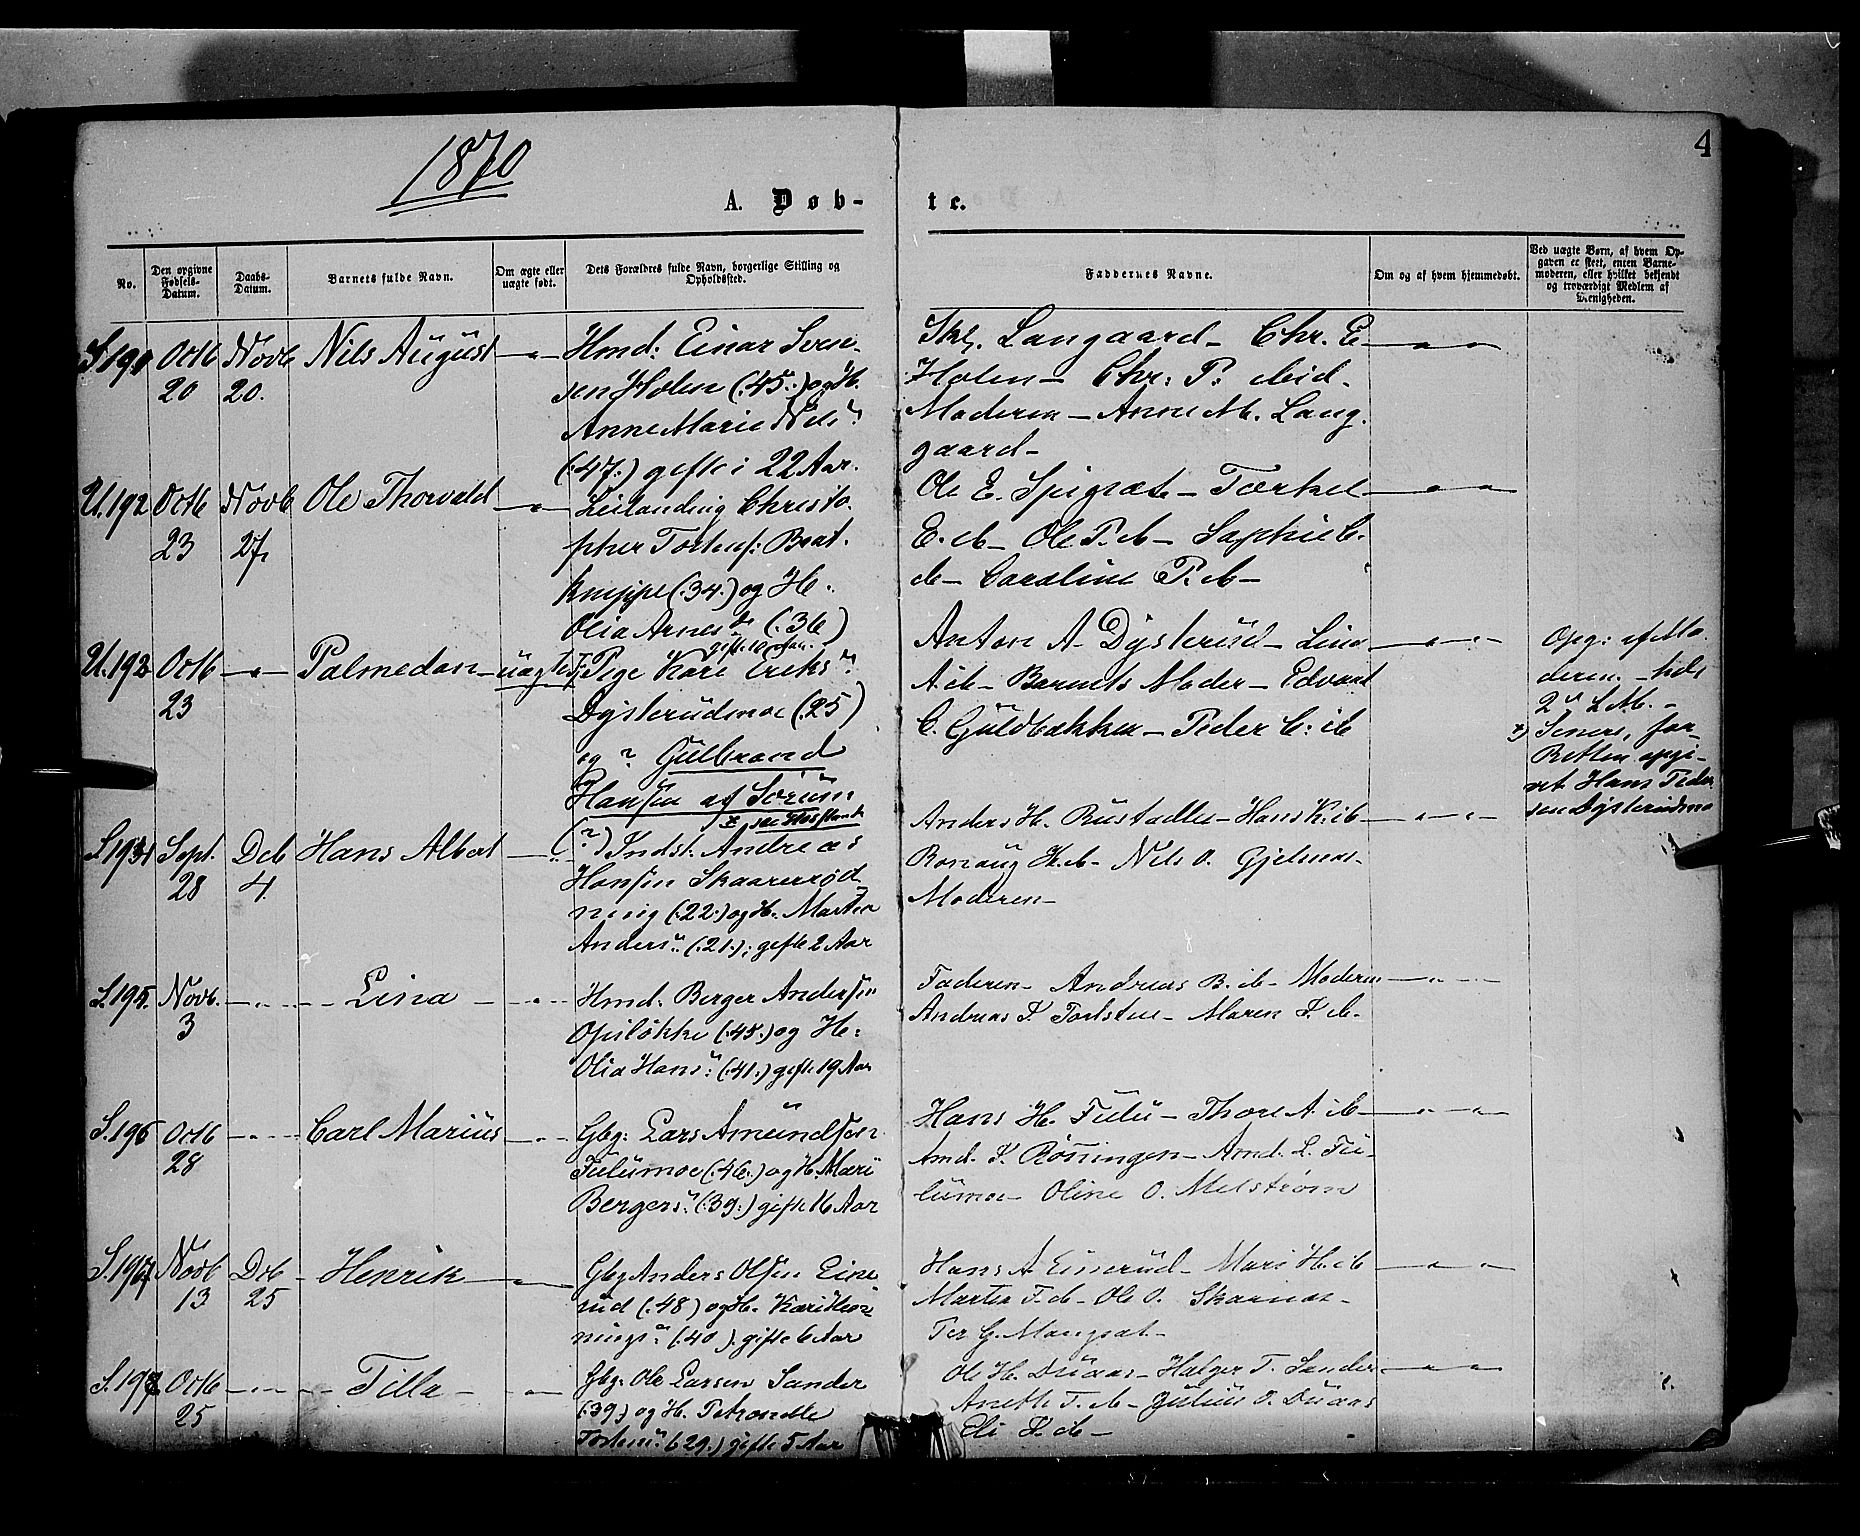 1870
4
A. Døb-
te.
No.
Den opgivne Fødsels-Datum.
Daabs-Datum.
Barnets fulde Navn.
Om ægte eller uægte født.
Dets Forældres fulde Navn, borgerlige Stilling og Opholdssted.
Faddernes Navne.
Om og af hvem hjemmedøbt.
Ved uægte Børn, af hvem Op-
gaven er skeet, enten Barne-
moderen, eller hvilket bekjendt
og troværdigt Medlem af
Menigheden.
S. 191 Octb 20 Novb 20. Nils August
Hmd: Einar Sven-
sen Holen (:45:) og H.
Anne Marie Nils
(:47:) gifte i 22 Aar.
Langaard - Chr. E.
Holen - Chr: P. ib id.
Moderen - Anne M. Lang-
gaard -
U. 192 Octb 23 Novb 27. Ole Thorvald
Leilænding Christo-
pher Tostens: Brat-
kneppe (:34:) og H.
Olia Arnesd (:36)
gifte 10 Aar.
Ole E. Spigset - Torkel
E. ib - Ole P. ib - Sophie C.
ib - Caroline P. ib -
U. 193 Octb 23 Palmedan uægte
Pige Kari Eriks
Dysterudmoe (:25)
og ? Gulbrand
Hansen af Sørum
Anton A. Dysterud - Lina
A. ib - Barnets Moder - Edvard
C. Guldbakken - Peder C. ib
Opg: af Mo-
deren.
2 L.M. -
x) Senere, for
Retten opgi-
vet Hans Peder-
sen Dysterudmo
S. 194 Sept. 28 Dcb 4. Hans Albert
(?) Indst. Andreas
Hansen Skaarerød-
ning (:22:) og H. Marthe
Anders (:21:); gifte 2 Aar
Anders H. Rustadlie - Hans K. ib -
Ronaug H. ib - Nils O. Gjelsnes -
Moderen -
S. 195. Novb. 3 Lina
Hmd: Berger Andersen
Opsløkke (:45:) og H:
Olia Hans (:41:) gifte 19 Aar
Faderen - Andreas B. ib - Moderen
Andreas Torksten - Maren ib -
S. 196 Octb 28 Carl Marius
Gbg: Lars Amundsen
Fulumoe (:46:) og H. Mari
Bergers (:39:) gifte 16 Aar
Hans H. Fulu - Thore A. ib -
Amd. Rønningen - Amd. L. Fu-
lumoe - Oline O. Melstrøm
S. 197 Novb 13 Dcb 25 Henrik
Gbg Anders Olsen Eine-
rud (:48) og H. Kari Hen-
nings (:40) gifte 6 Aar
Hans A. Einerud - Mari H. ib
Marthe T. ib - Ole O. Skaaret -
Per G. Mangset -
S. 198 Octb 25 Tilla
Gbg: Ole Larsen Sander
(:39) og H. Petronelle
Tostens (:29.) gifte 5 Aar
Ole H. Duaas - Holger T. Sander
Anette T. ib - Julius O. Duaas
Eli ib -